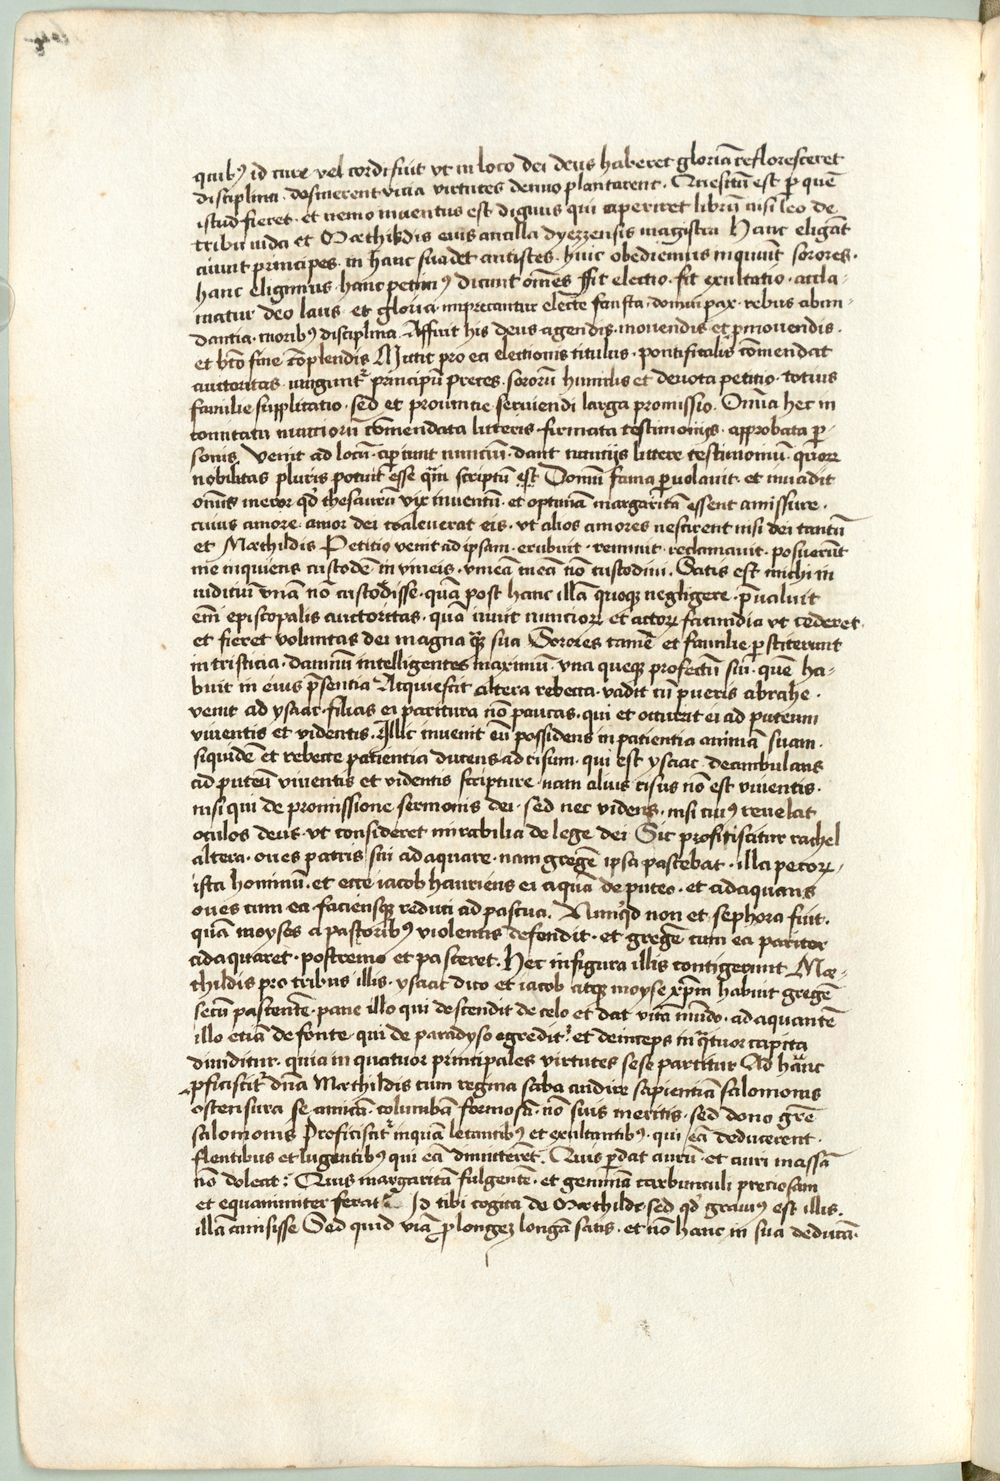 quib⁹ id cure vel cordi fuit vt in loco dei deus haberet gloriā refloresceret
disciplina. desinerent vicia virtutes denuo plantarent. Quesitū est p quē
istud fieret. et nemo inuentus est dignus qui aperiret librū nisi leo de
tribu iuda et Mæthildis eius ancilla dyezzensis magistra Hanc eligāt
aiunt principes. in hanc suadet antistes. huic obediemus inquiūt sorores.
hanc eligimus. hanc petim⁹ dicunt om̄es Fit electio. fit exultatio. accla-
matur deo laus et gloria. imprecantur electe fausta. domui pax. rebus abun-
dantia. morib⁹ disciplina Affuit his deus agendis. mouendis et pmouendis.
et bt̄o fine cōplendis Mittit pro ea electionis titulus. pontificalis cōmendat
auctoritas. iungunt̃ principū preces. sororū humilis et deuota petitio. totius
familie supplicatio. sed et prouincie seruiendi larga promissio. Om̄ia hec in
comitatu nuncioru cōmendata litteris. firmata testimonijs. approbata p-
sonis Venit ad locū. aperiunt nunciū. dant nuncijs littere testimoniū. quoꝝ
nobilitas pluris potuit esse q̄m scriptū est Domū fama puolauit. et inuadit
om̄is meror qd̛ thesaurū vix inuentū. et optimā margaritā essent amissure.
cuius amore. amor dei coaleuerat eis. vt alios amores nescirent nisi dei tantū
et Mæthildis Petitio venit ad ipsam. erubuit. rennuit. reclamauit. posuerūt
me inquiens custodē in vineis. vineā meā nō custodiui. Satis est michi in
iudiciū vnā nō custodisse. quā post hanc illā quoqꝫ negligere. pualuit
em̄ episcopalis auctoritas. quā iuuit nuncioꝝ et actoꝝ facundia vt cederet
et fieret voluntas dei magna q̄ꝫ sua Sorores tamē et familie pstiterunt
in tristicia. damnū intelligentes maximū. vna queqꝫ profectū sui. quē ha-
buit in eius psentia Acquiescit altera rebecca. vadit cū pueris abrahe.
venit ad ysaac. filias ei paritura nō paucas. qui et occurrit ei ad puteum
viuentis et videntis. Illic inuenit eū possidens in patientia animā suam.
siquidē et rebecce patientia ducens ad risum. qui est ysaac deambulans
ad puteū viuentis et videntis scripture. nam alius risus nō est viuentis.
nisi qui de promissione sermonis dei. sed nec videns. nisi cui⁹ reuelat
oculos deus. vt consideret mirabilia de lege dei Sic profitiscitur rachel
altera. oues patris sui adaquare. nam gregē ipsa pascebat. illa pecoꝝ.
ista hominū. et ecce iacob hauriens ei aquā de puteo. et adaquans
oues cum ea. faciensqꝫ reduci ad pascua. Nunqd̛ non et sephora fuit.
quā moyses a pastorib⁹ violentis defendit. et gregē cum ea pariter
adaquaret. postremo et pasceret. Hec in figura illis contigerunt Mæ-
thildis pro tribus illis. ysaac dico et iacob atqꝫ moyse xp̄m habuit gregē
secū pascentē. pane illo qui descendit de celo et dat vitā mūdo. adaquantē
illo etiā de fonte. qui de paradyso egredit̃. et deinceps in q̄tuor capita
diuiditur. quia in quatuor principales virtutes sese partitur Ad hāc
pficiscit̃ dn̄a Mæthildis cum regina saba audire sapientiā salomonis
ostensura se amicā. columbā. formosā. nō suis meritis. sed dono grē
salomonis Proficiscit̃ inquā letantib⁹ et exultantib⁹. qui eā deducerent.
flentibus et lugentib⁹ qui eā dimitterēt. Quis pdat aurū. et auri massā
nō doleat: Quis margaritā fulgentē. et gemmā carbunculi preciosam
et equanimiter ferat Id tibi cogita de Mæthilde. sed qd̛ grauius est illis.
illā amisisse Sed quid viā plonge longā satis. et nō hanc in sua deducā.